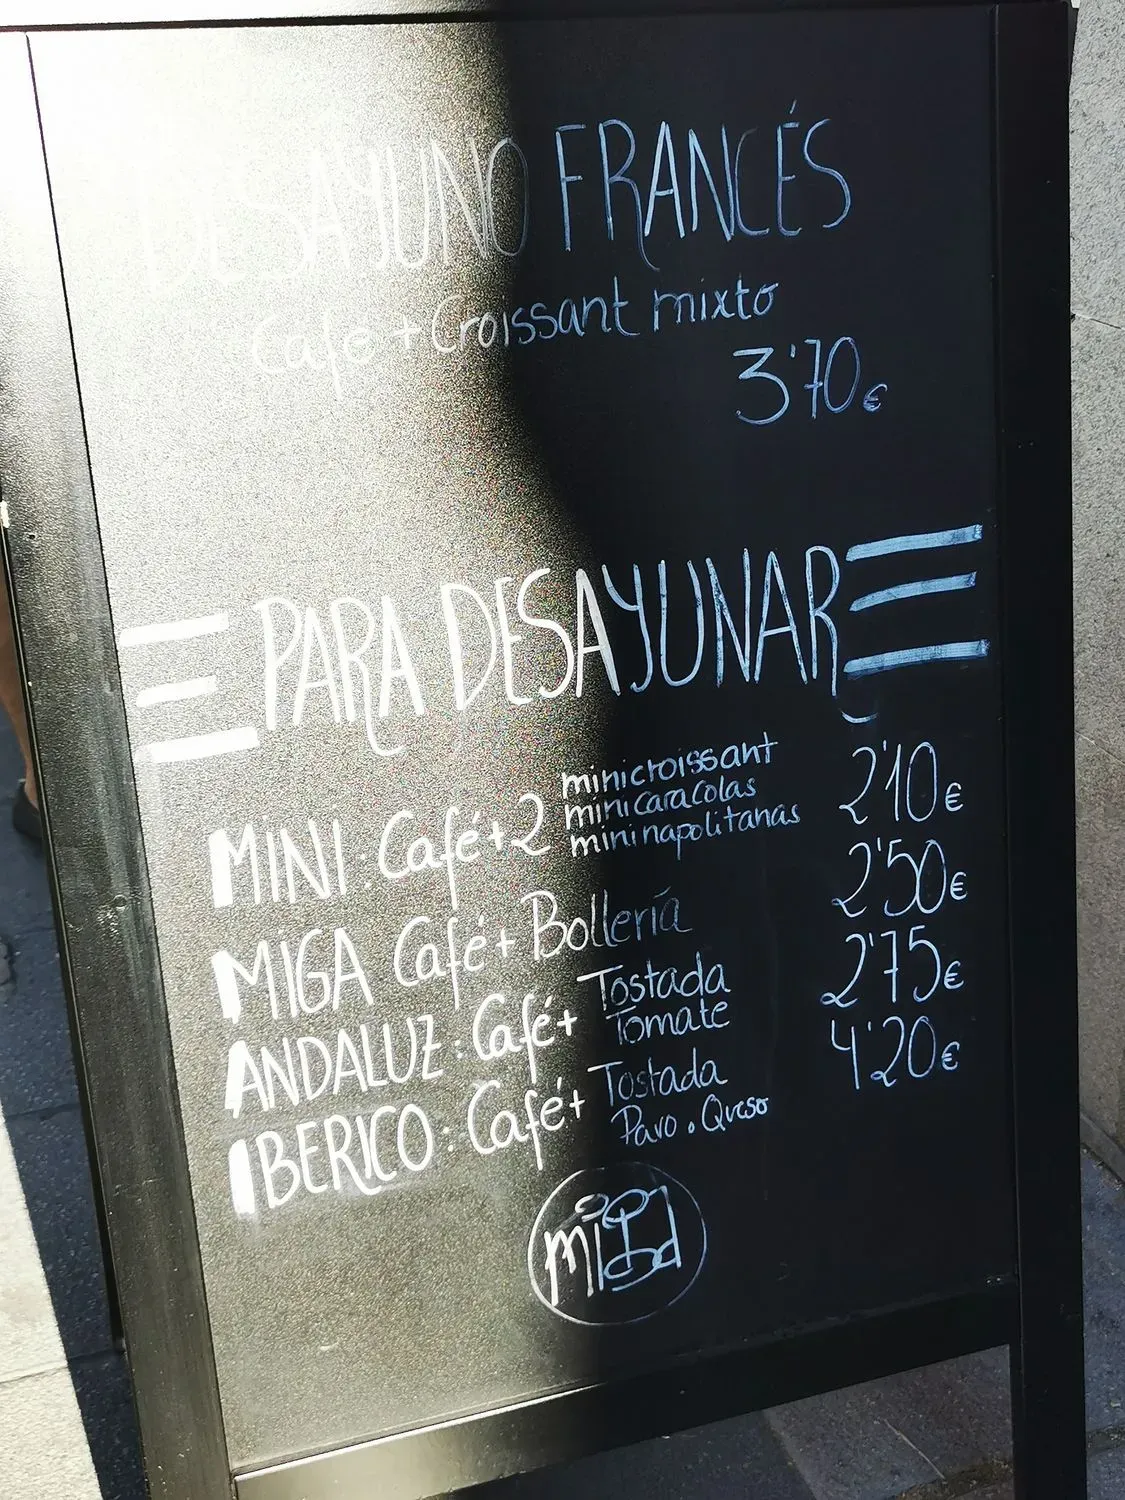 DESAYUNO FRANCÉS
Café + Croissant mixto
3'70€
PARA DESAYUNAR
minicroissant
MINI: Café + 2 minicaracolas 2'10€
mininapolitanas
MIGA Café + Bollería 2'50€
ANDALUZ: Café + Tostada 2'75€
Tomate
IBERICO: Café + Tostada 4'20€
Pavo. Queso
miga